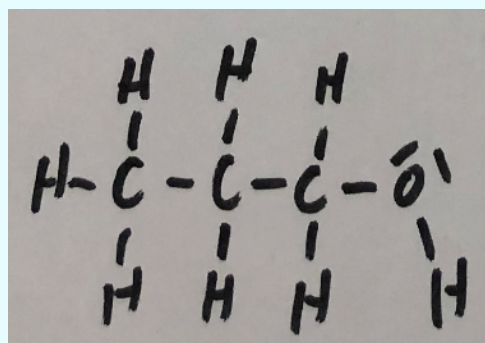 H H H
H - C - C - C - O
H H H H